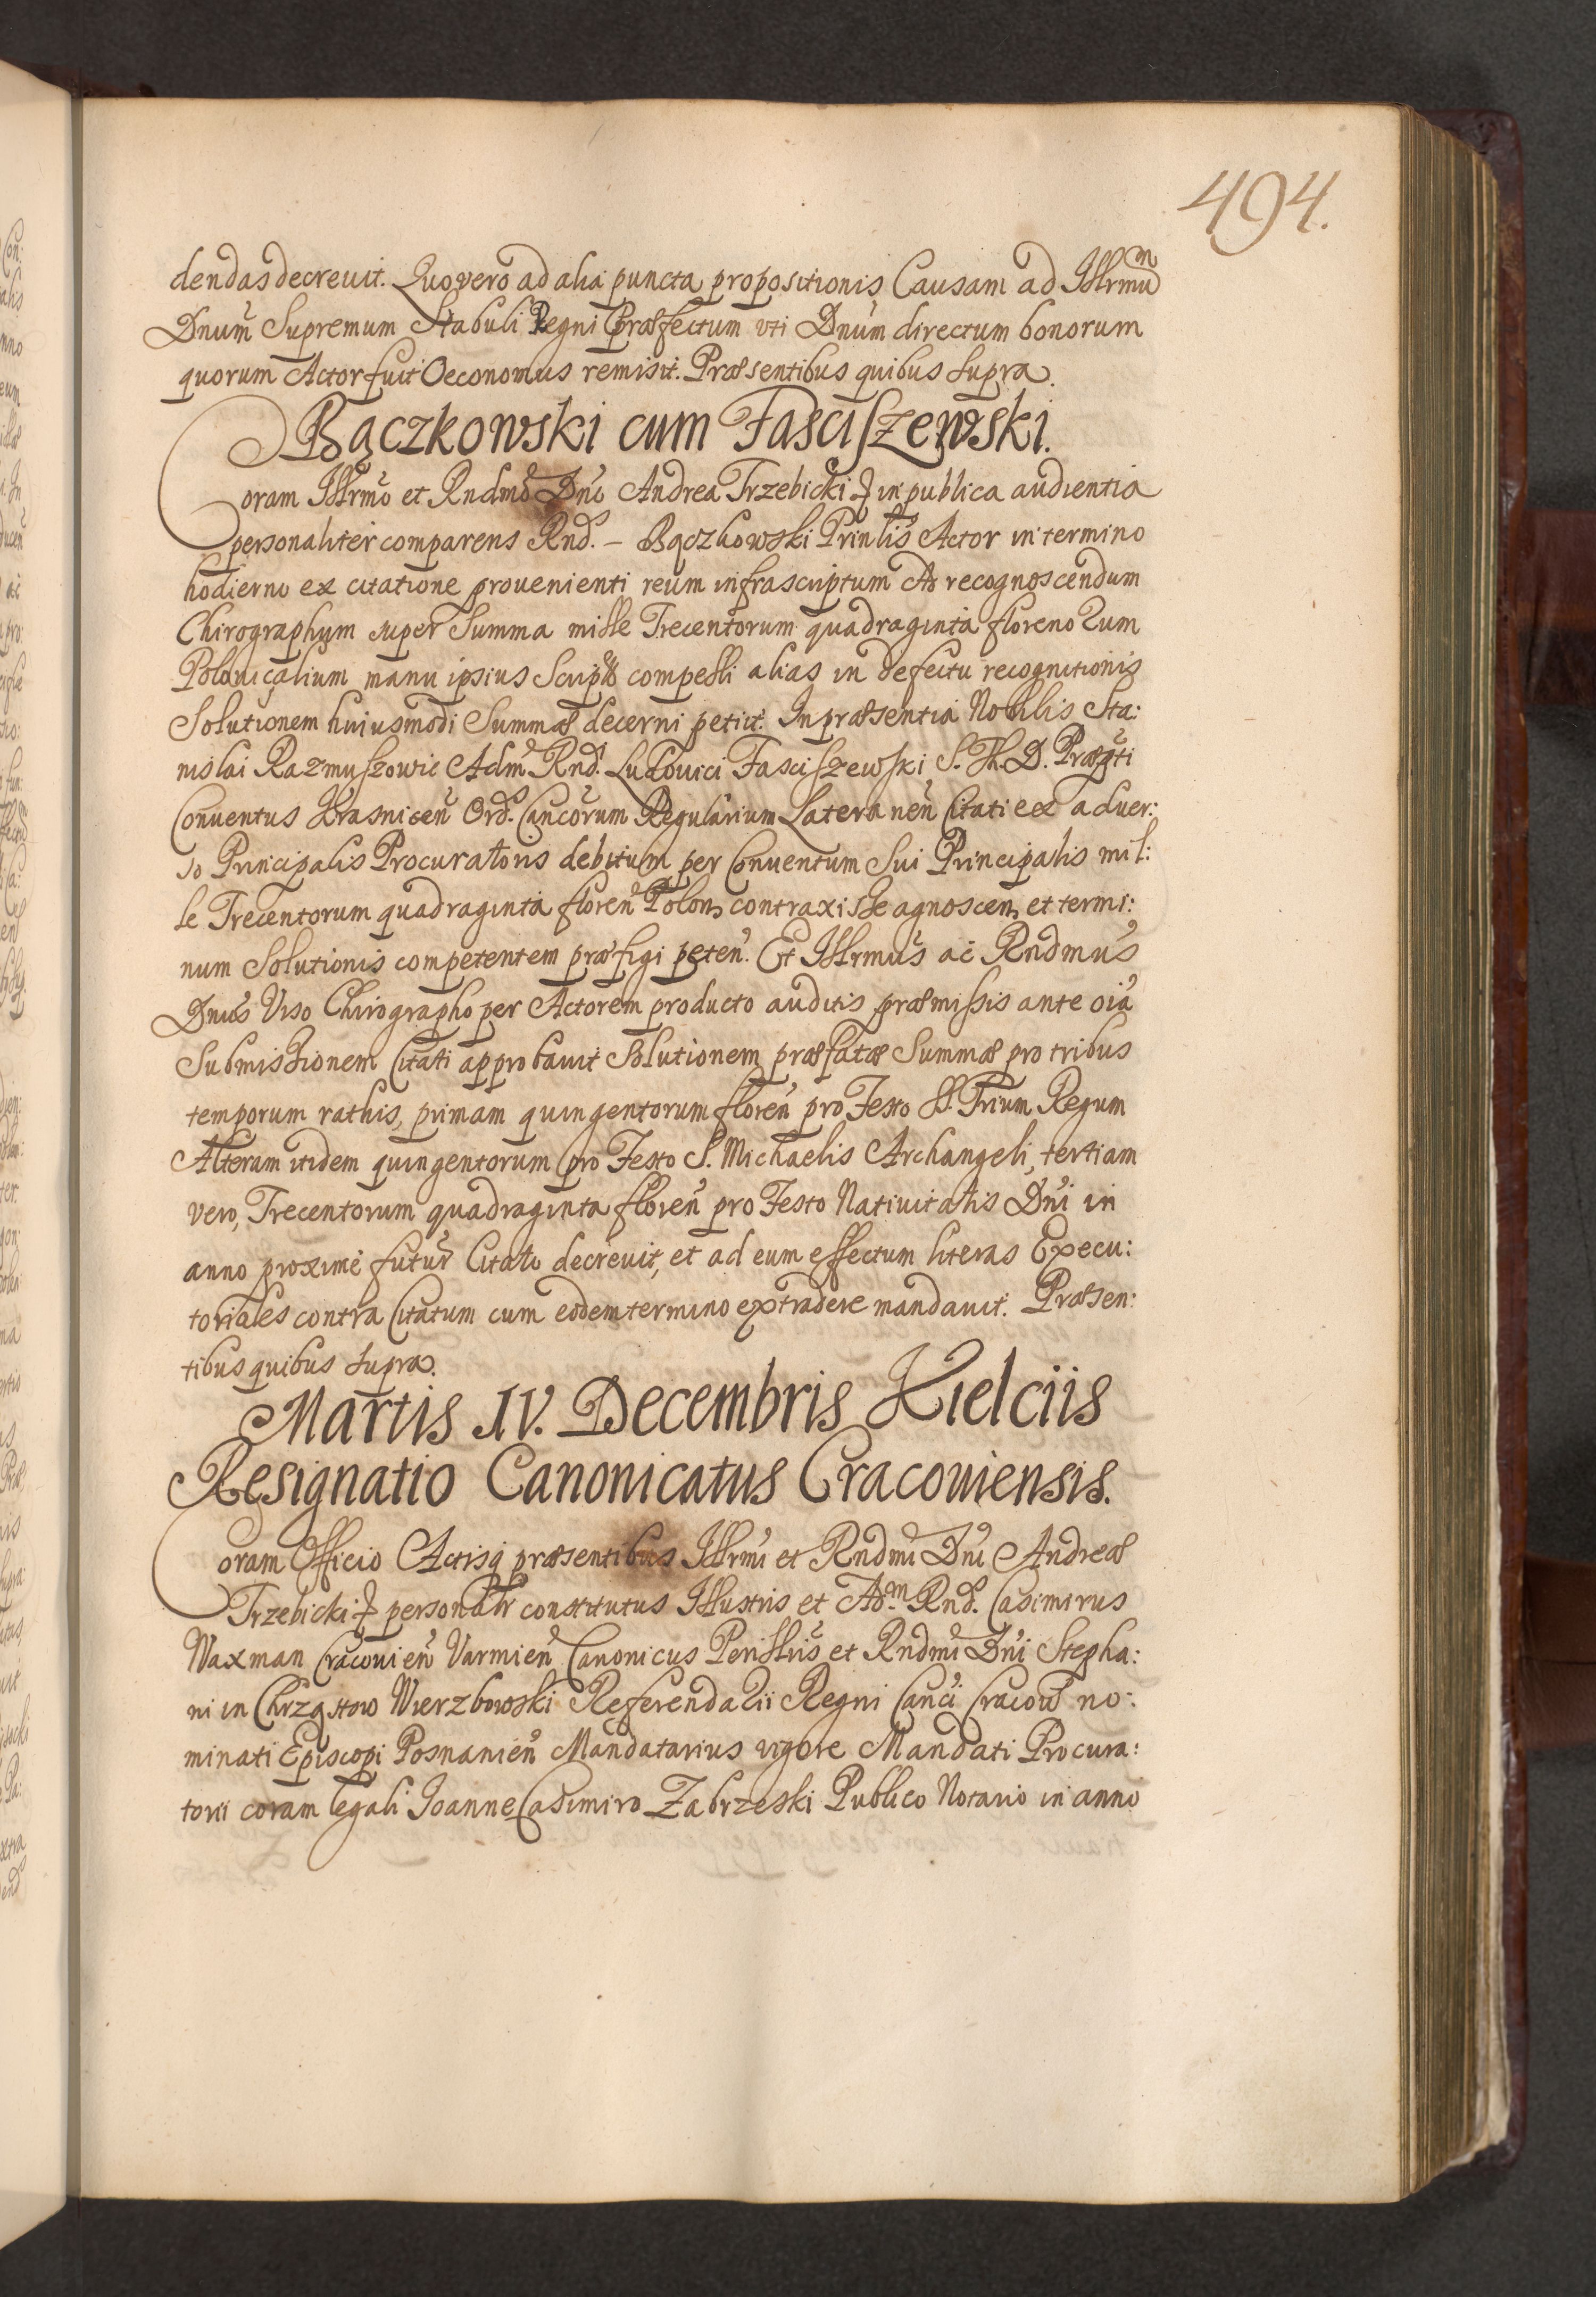 494.
dendas decreuit. Quo vero ad alia puncta propositionis Causam ad Illrmũ
Dnum̃ Supremum Stabuli Regni Præfectum vti Dnum̃ directum bonorum
quorum Actor fuit Oeconomus remisit. Præsentibus quibus supra.
Bączkowski cum Fasciszewski.
Coram Illrmo et Rndmo Dno Andrea Trzebicki in publica audientia
personaliter comparens Rnds. – Bączkowski Prinlis Actor in termino
hodierno ex citatione prouenienti reum infrascriptum Ad recognoscendum
Chirographum super Summa mille Trecentorum quadraginta florenorum
Polonicalium manu ipsius compelli alias in defectu recognitionis
Solutionem huiusmodi Summæ decerni petiit. In præsentia Nobilis Sta:
nislai Razmuszowic Adm Rndi. Ludouici Fasciszewski S. Th. D. Præpti
Conuentus Krasnicen̄ Ord. Cancorum Regularium Lateranen̄ Citati ex aduer:
so Principalis Procuratoris debitum per Conuentum Sui Principalis mil:
le Trecentorum quadraginta floren̄ Polon contraxisse agnoscen et termi:
num Solutionis competentem præfigi peten̄. Et Illrmus ac Rndmus
Dnus Viso Chirographo per Actorem producto auditis præmissis ante oia
Submissionem Citati approbauit Solutionem præfatæ Summæ pro tribus
temporum rathis, primam quingentorum floren̄ pro Festo SS. Trium Regum
Alteram itidem quingentorum pro Festo S. Michaelis Archangeli, tertiam
vero, Trecentorum quadraginta floren̄ pro Festo Natiuitatis Dni in
anno proximè futur̃ Citato decreuit, et ad eum effectum literas Execu:
toriales contra Citatum cum eodem termino extradere mandauit. Præsen:
tibus quibus supra.
Martis IV. Decembris Kielciis
Resignatio Canonicatus Cracouiensis.
Coram Officio Actisq præsentibus Illrmi et Rndmi Dni Andreæ
Trzebicki personalr constitutus Illustris et Adm Rnds. Casimirus
Waxman Cracouien̄ Varmien̄ Canonicus Perillris et Rndmi Dni Stepha:
ni in Chrząstow Wierzbowski Referendarii Regni Canci Cracou̅ no:
minati Episcopi Posnanien̄ Mandatarius vigore Mandati Procura:
torii coram legali Joanne Casimiro Zabrzeski Publico Notario in anno